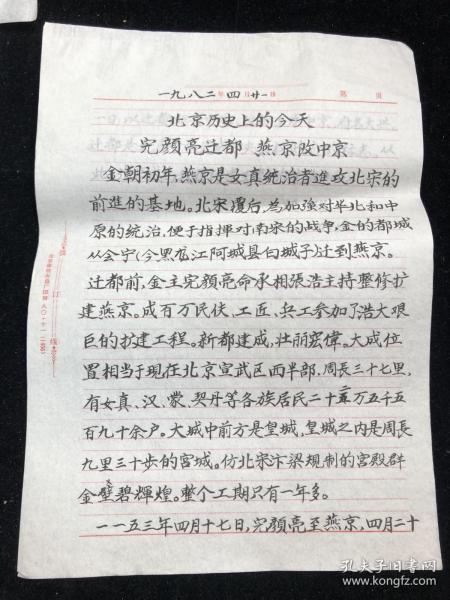 一九八二年四月廿一日 第 页
北京历史上的今天
完顔亮迁都 燕京改中京
金朝初年,燕京是女真统治者進攻北宋的
前進的基地。北宋覆后,為加強对华北和中
原的统治,便于指揮对南宋的战争,金的都城
从会宁(今黑龙江阿城县白城子)迁到燕京。
迁都前,金主完顔亮命承相張浩主持整修扩
建燕京。成百万民伕、工匠、兵工参加了浩大艰
巨的扩建工程。新都建成,壮丽宏偉。大城位
置相当于現在北京宣武区西半部,周長三十七里,
有女真、汉、蒙、契丹等各族居民二十五万五千五
百九十余户。大城中前方是皇城,皇城之内是周長
九里三十步的宮城。仿北宋汴梁規制的宮殿群
金壁碧輝煌。整个工期只有一年多。
一一五三年四月十七日,完顔亮至燕京,四月二十
装订线
孔夫子旧书网
www.kongfz.com